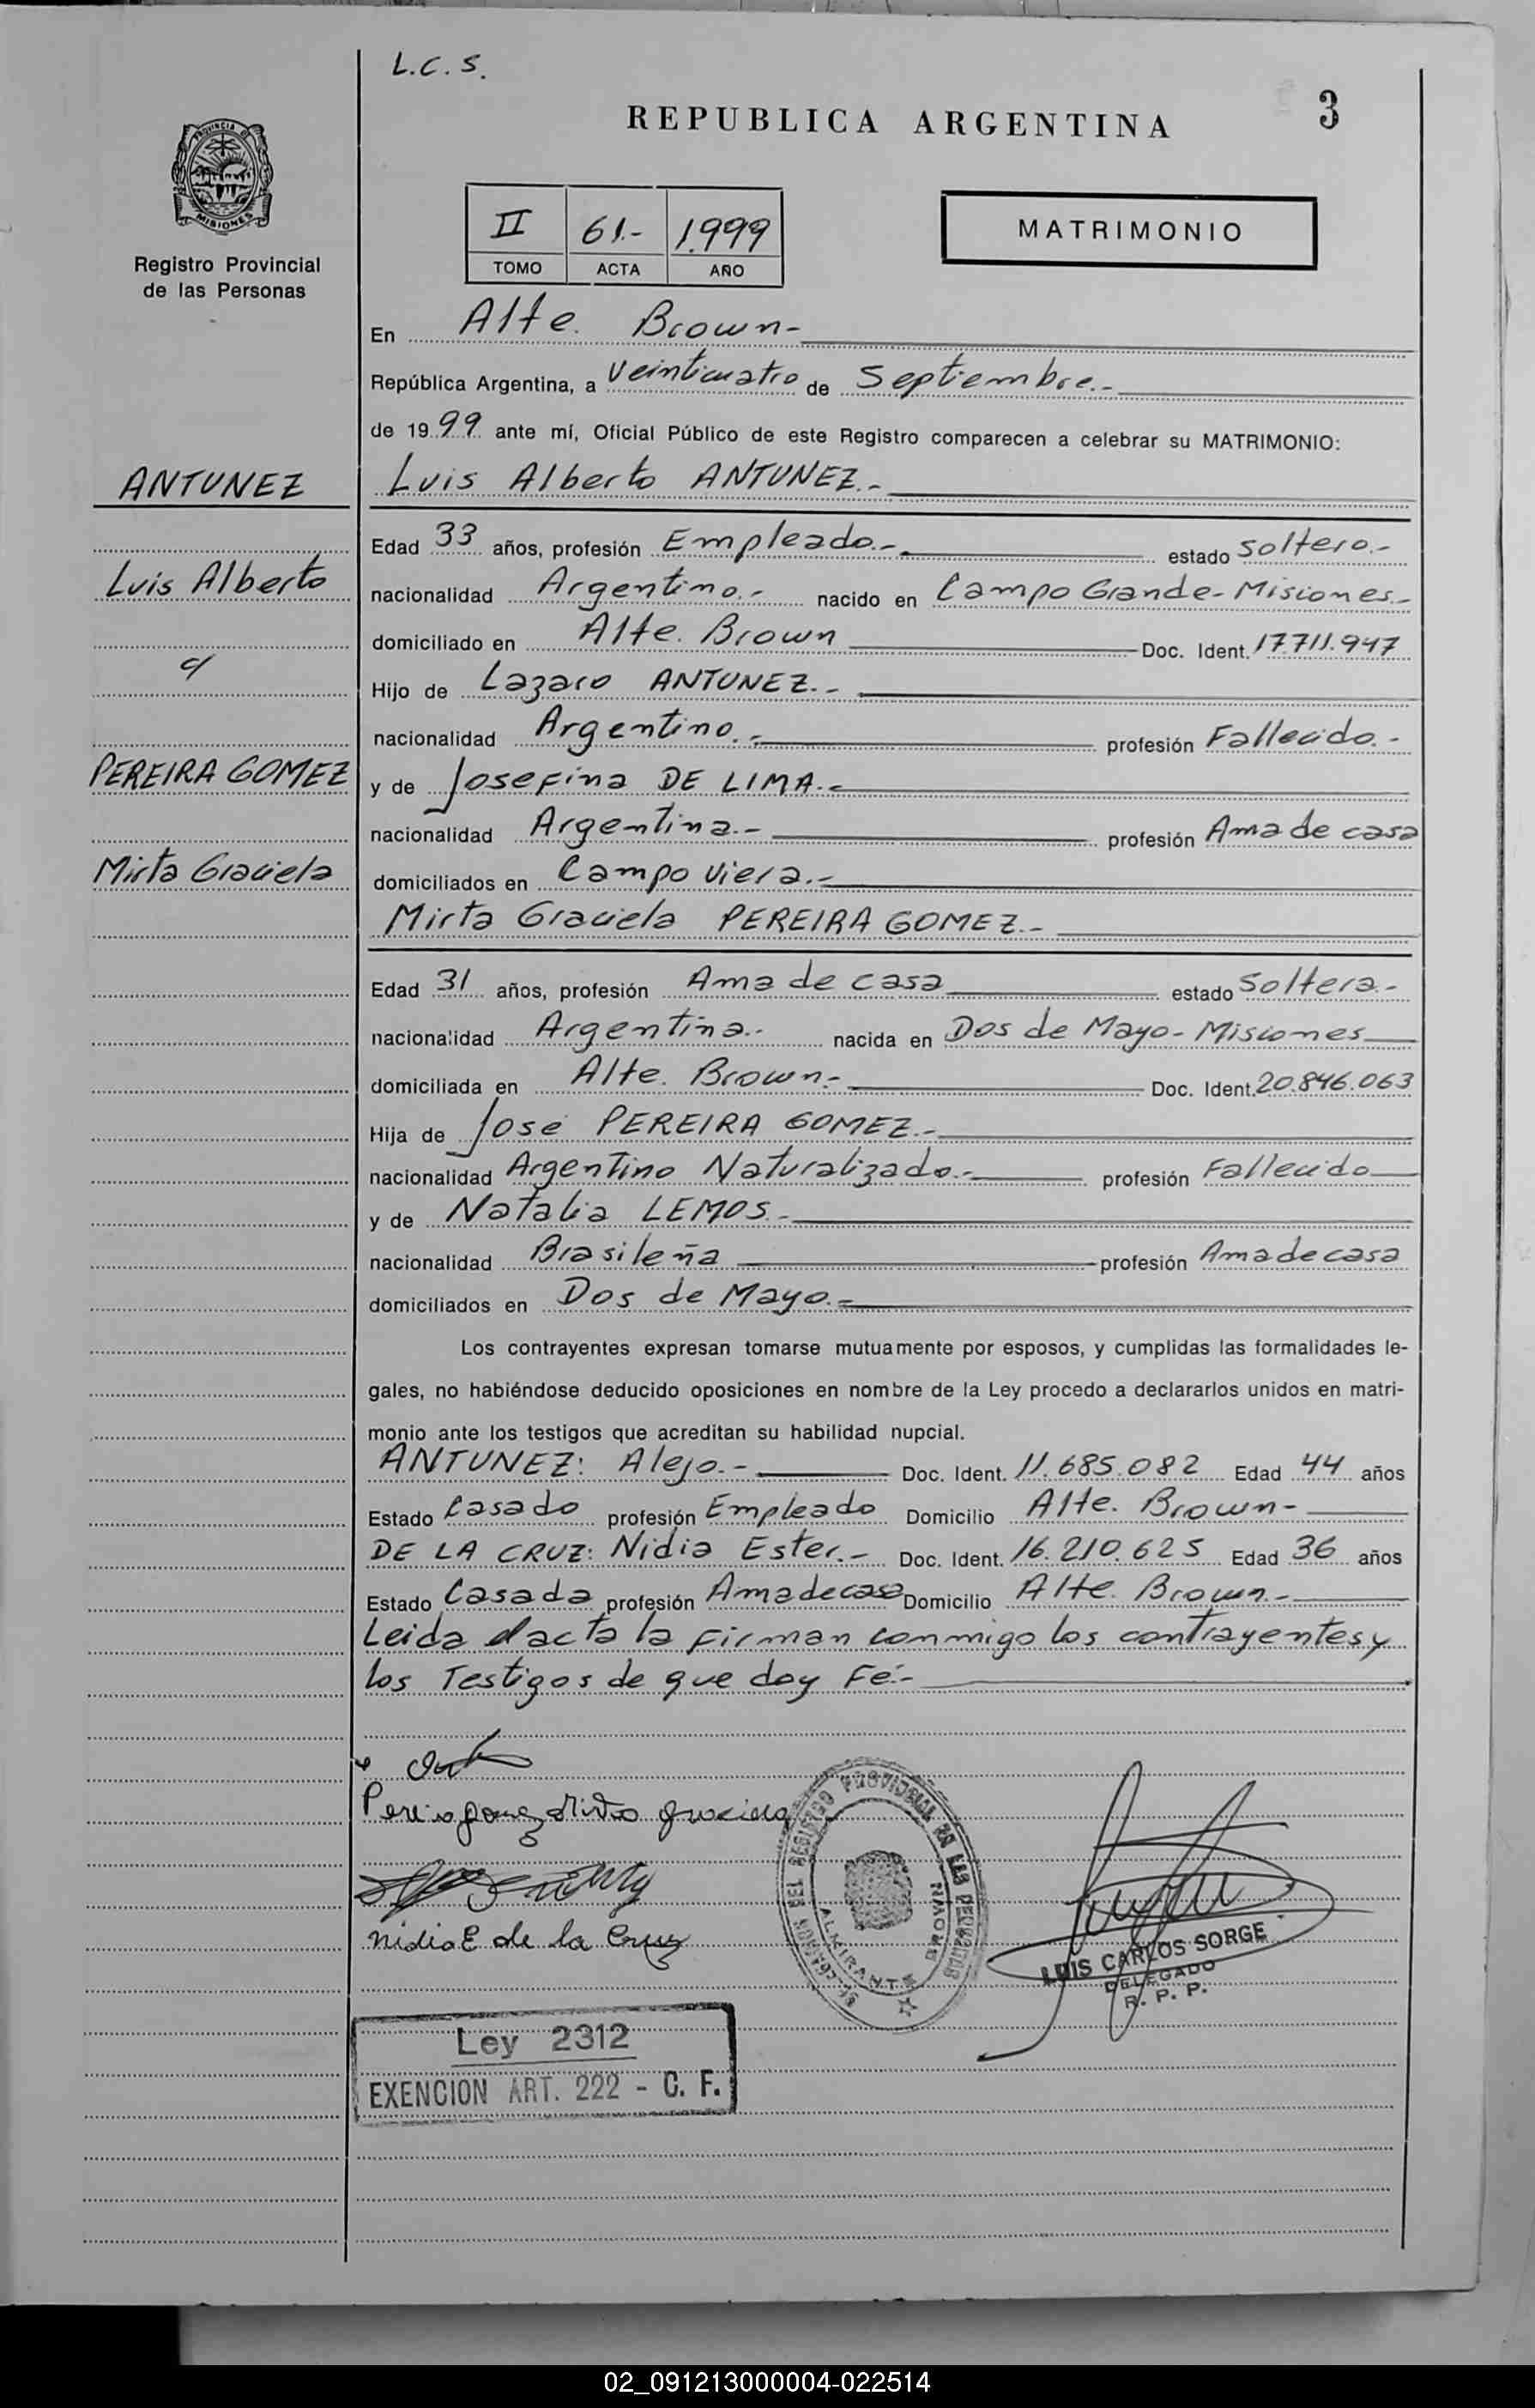 L.C.S.
REPUBLICA ARGENTINA
3
PROVINCIA DE
MISIONES
Registro Provincial
de las Personas
II 61.- 1.999
TOMO ACTA AÑO
MATRIMONIO
En Alte. Brown-
República Argentina, a Veinticuatro de Septiembre.-
de 1999 ante mí, Oficial Público de este Registro comparecen a celebrar su MATRIMONIO:
ANTUNEZ
Luis Alberto ANTUNEZ.-
Edad 33 años, profesión Empleado.- estado Soltero.-
Luis Alberto
nacionalidad Argentino.- nacido en Campo Grande-Misiones.-
domiciliado en Alte. Brown Doc. Ident. 17.711.947
c/
Hijo de Lazaro ANTUNEZ.-
nacionalidad Argentino.- profesión Fallecido.-
PEREIRA GOMEZ
y de Josefina DE LIMA.-
nacionalidad Argentina.- profesión Ama de casa
Mirta Graciela
domiciliados en Campo Viera.-
Mirta Graciela PEREIRA GOMEZ.-
Edad 31 años, profesión Ama de casa estado Soltera.-
nacionalidad Argentina.- nacida en Dos de Mayo-Misiones
domiciliada en Alte. Brown.- Doc. Ident. 20.846.063
Hija de José PEREIRA GOMEZ.-
nacionalidad Argentino Naturalizado.- profesión Fallecido
y de Natalia LEMOS.-
nacionalidad Brasileña profesión Ama de casa
domiciliados en Dos de Mayo.-
Los contrayentes expresan tomarse mutuamente por esposos, y cumplidas las formalidades le-
gales, no habiéndose deducido oposiciones en nombre de la Ley procedo a declararlos unidos en matri-
monio ante los testigos que acreditan su habilidad nupcial.
ANTUNEZ: Alejo.- Doc. Ident. 11.685.082 Edad 44 años
Estado Casado profesión Empleado Domicilio Alte. Brown-
DE LA CRUZ: Nidia Ester.- Doc. Ident. 16.210.625 Edad 36 años
Estado Casada profesión Ama de casa Domicilio Alte. Brown.-
Leida el acta la firman conmigo los contrayentes y
los Testigos de que doy Fé.-
Pereira gomez Mirta graciela
nidia E de la Cruz
DEL REGISTRO PROVINCIAL DE LAS PERSONAS
ALMIRANTE BROWN
LUIS CARLOS SORGE
DELEGADO
R. P. P.
Ley 2312
EXENCION ART. 222 - C. F.
02_091213000004-022514